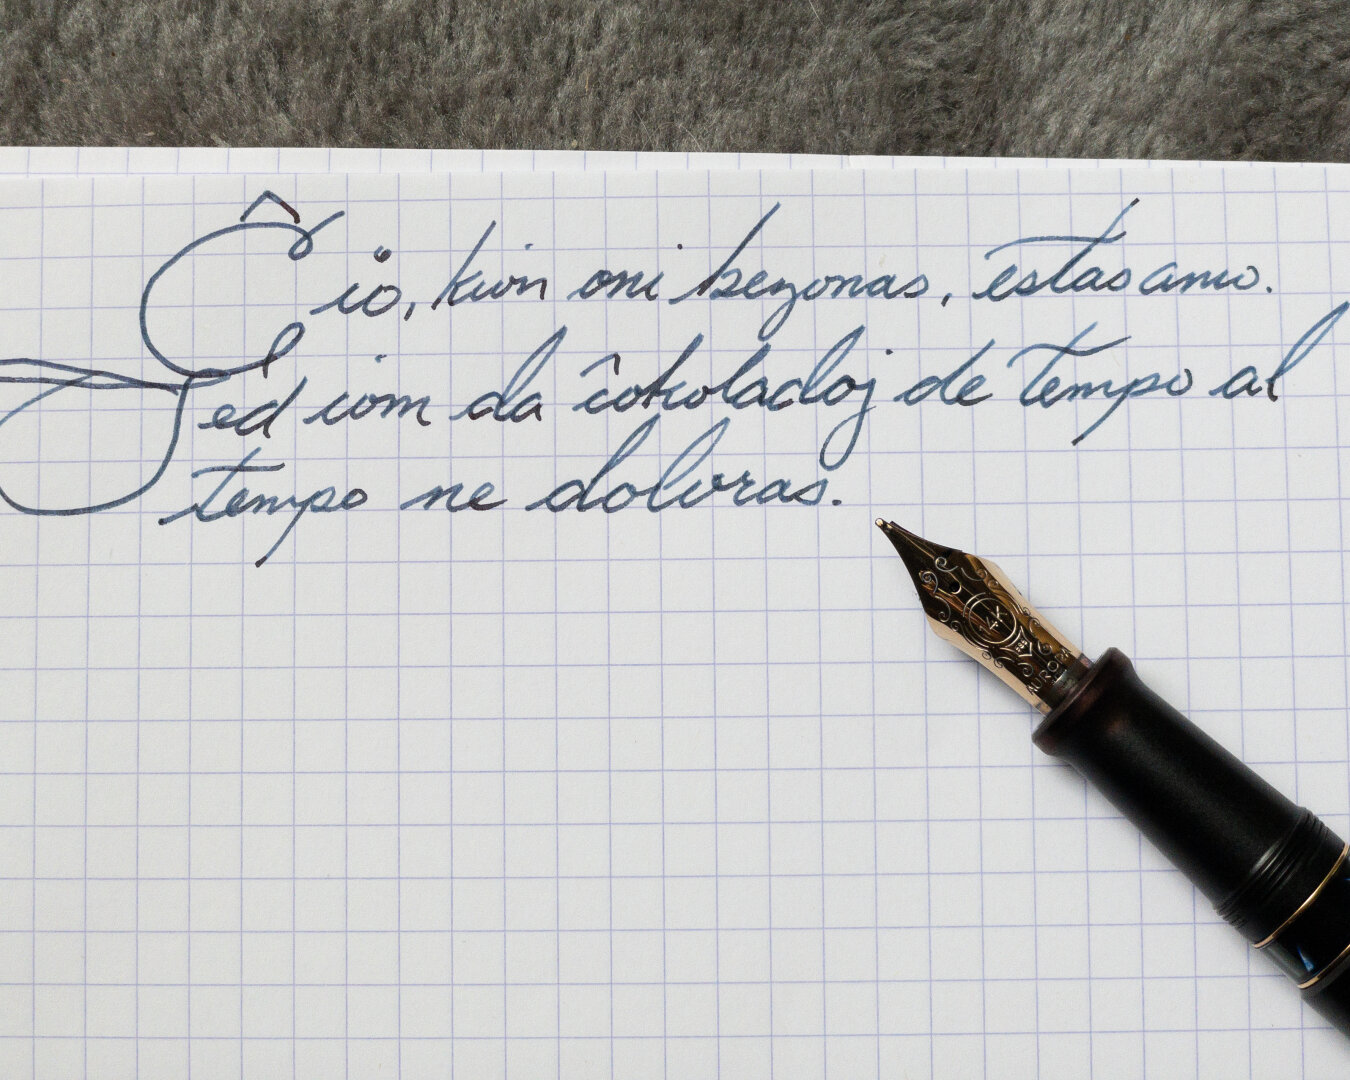 Ĉio, kion oni bezonas, estas amo.
Sed iom da ĉokoladoj de tempo al
tempo ne doloras.
14K
AURORA